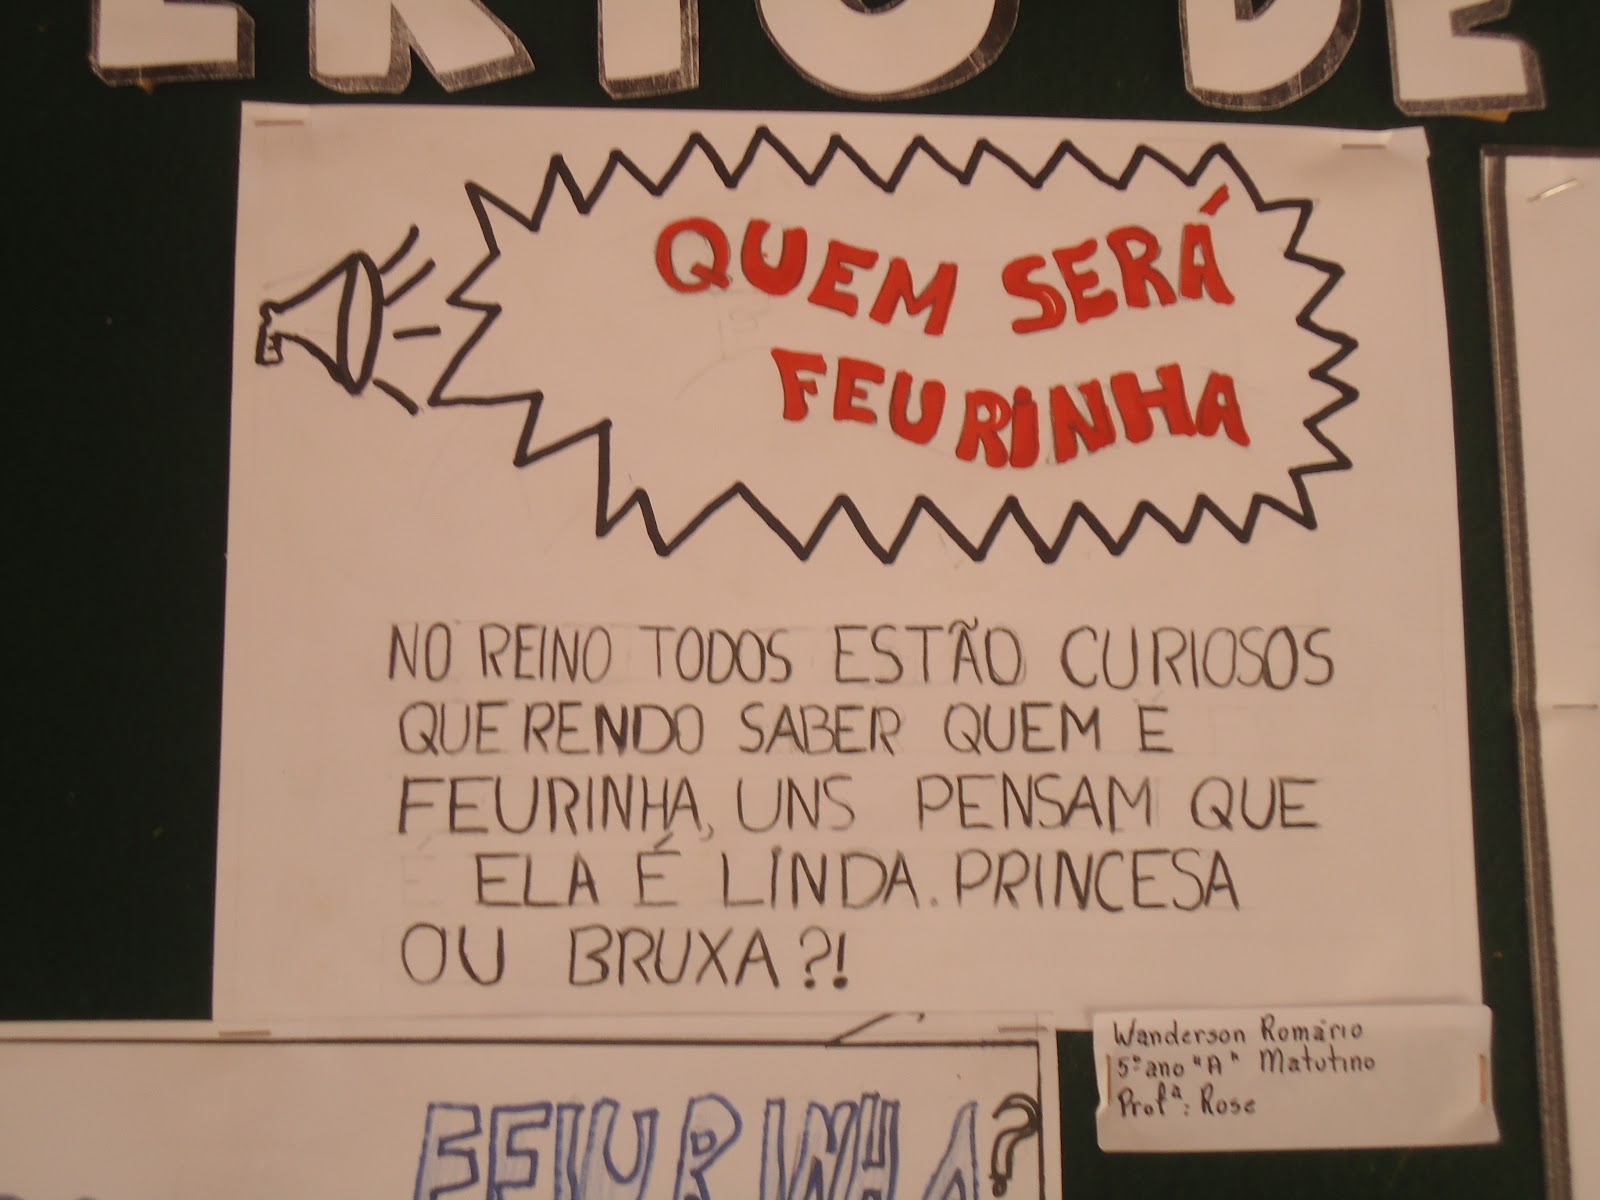 QUEM SERÁ
FEURINHA
NO REINO TODOS ESTÃO CURIOSOS
QUERENDO SABER QUEM E
FEURINHA, UNS PENSAM QUE
ELA É LINDA. PRINCESA
OU BRUXA?!
Wanderson Romário
5º ano "A" Matutino
Profª: Rose
FEIURINHA?